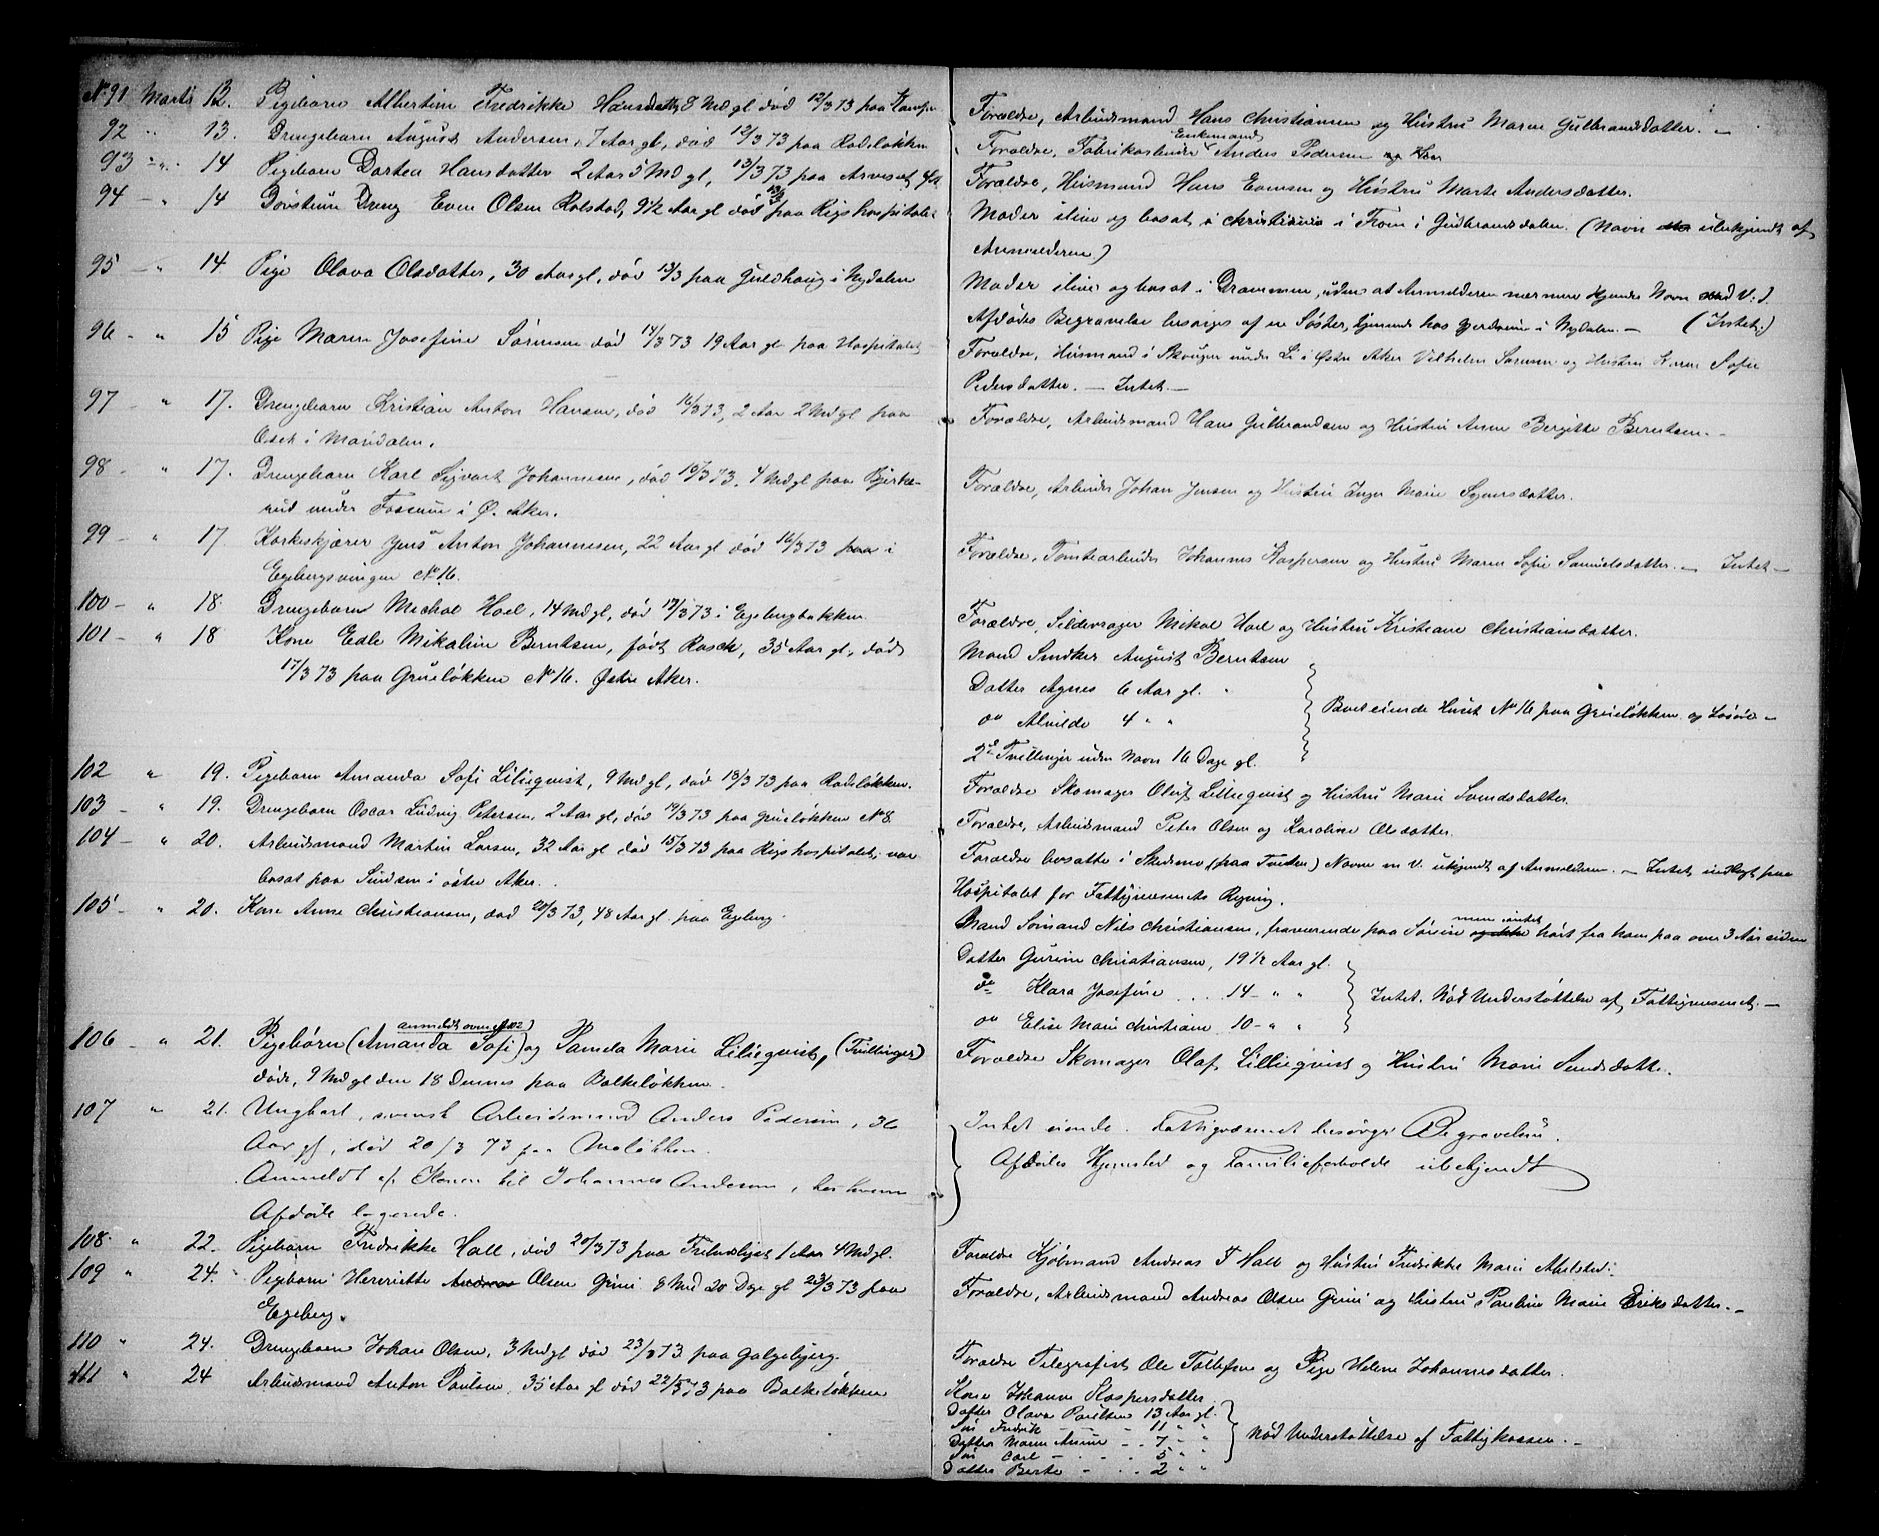 No 91 Marts 13. Pigebarn Albertine Fredrikke Hansdatter, 8 Md gl død 12/3 73 paa Kampen
Forældre, Arbeidsmand Hans Christiansen og Hustru Maren Gulbrandsdatter. –
92 " 13. Drengebarn August Andersen, 7 Aar gl, død 12/3 73 paa Rodeløkken
Forældre, Fabrikarbeider Enkemand Anders Pedersen og Hans
93 – " 14 Pigebarn Dortea Hansdatter 2 Aar 5 Md gl, 13/3 73 paa
Forældre, Husmand Hans Evensen og Hustru Marte Andersdatter.
94 – " 14 Døvstum Dreng Even Olsen Rolstad, 9 1/2 Aar gl død 13/3 paa Rigshospitalet
Moder ilive og bosat i Christiania i Fron i Gudbrandsdalen. (Navn ubekjendt af
Anmelderen)
95 – " 14 Pige Olava Olsdatter, 30 Aar gl, død 13/3 paa Guldhaug i Nydalen
Moder ilive og bosat i Drammen, uden at Anmelderen nærmere kjender Navn
Afdødes Begravelse besørges af en Søster, tjenende hos i Nydalen. – (Intet.)
96 – " 15 Pige Maren Josefine Sørensen død 14/3 73 19 Aar gl paa Hospitalet
Forældre, Husmand i Skougen under Li i Østre Aker Vilhelm Sørensen og Hustru Karen Sofie
Pedersdatter. – Intet. –
97 – " 17. Drengebarn Kristian Anton Hansen, død 16/3 73, 2 Aar 2 Md gl paa
Oset i Maridalen.
Forældre, Arbeidsmand Hans Gulbrandsen og Hustru Anne Bergitte Berntsen. –
98 – " 17. Drengebarn Karl Sigvart Johannesen, død 16/3 73, 4 Md gl paa Bjerke-
rud under Fossum i Ø. Aker.
Forældre, Arbeider Johan Jensen og Hustru Inger Marie Syversdatter.
99 – " 17. Korkeskjærer Jens Anton Johannesen, 22 Aar gl død 16/3 73 paa i
Egebergsvingen No 16.
Forældre, Tomtearbeider Johannes Kaspersen og Hustru Maren Sofie Samuelsdatter. – Intet –
100 – " 18. Drengebarn Michal Hoel, 14 Md gl, død 17/3 73 i Egebergbakken.
Forældre, Sildevrager Mikal Hoel og Hustru Kristiane Christiansdatter.
101 – " 18 Kone Edle Mikaline Berntsen, født Rasch, 35 Aar gl, død
17/3 73 paa Grueløkken No 16. Østre Aker.
Mand Snedker August Berntsen
Datter Agnes 6 Aar gl.
do Alvilde 4 " "
2de Tvillinger uden Navn 16 Dage gl.
Boet eiende Huset No 16 paa Grueløkken og Løsøre –
102 " 19. Pigebarn Amanda Sofi Liliequist, 9 Md gl, død 18/3 73 paa Rodeløkken.
Forældre Skomager Oluf Lilliequist og Hustru Marie Svendsdatter.
103 – " 19. Drengebarn Oscar Ludvig Petersen, 2 Aar gl, død 19/3 73 paa Grueløkken No 8.
Forældre, Arbeidsmand Peter Olsen og Karoline Olsdatter.
104 – " 20. Arbeidsmand Martin Larsen, 32 Aar gl død 15/3 73 paa Rigshospitalet, var
bosat paa Sindsen i østre Aker.
Forældre bosatte i Skedsmo (paa Tveter) Navne m v. ukjendt af Anmelderen. – Intet, indlagt paa
Hospitalet for Fattigvæsenets Regning.
105 – " 20. Kone Anne Christiansen, død 20/3 73, 48 Aar gl. paa Egeberg.
Mand Sømand Nils Christiansen, fraværende paa Søreise og ikke men intet hørt fra ham paa over 3 Aar siden
Datter Gurine Christiansen, 19 1/2 Aar gl.
do Klara Josefine .... 14 – " "
do Elise Marie Christiane 10 – " "
Intet. Nød Understøttelse af Fattigvæsenet. –
106 – " 21. Pigebørn (Amanda Sofi) anmeldt ovenf. 102) og Pamela Marie Liliequist, (Tvillinger)
døde, 9 Md gl den 18 Dennes paa Balkeløkken.
Forældre Skomager Olaf Lilliequist og Hustru Marie Svendsdatter.
107 " 21. Ungkarl, svensk Arbeidsmand Anders Pedersen, 36
Aar gl, død 20/3 73 paa
Anmeldt af Konen til Johannes Andersen, hos hvem
Afdøde logerede.
Intet eiende. Fattigvæsenet besørger Begravelsen.
Afdødes Hjemsted og Familieforholde ubekjendt
108 " 22. Pigebarn Fredrikke Hall, død 20/3 73 paa 1 Aar 4 Md gl.
Forældre Kjøbmand Andreas F Hall og Hustru Fredrikke Marie Abelsted.
109 " 24. Pigebarn Henriette Andrea Olsen Grini 8 Md 20 Dage gl 23/3 73 paa
Egeberg.
Forældre, Arbeidsmand Andreas Olsen Grini og Hustru Pauline Marie Eriksdatter. –
110 " 24. Drengebarn Johan Olsen, 3 Md gl død 23/3 73 paa Galgebjerg.
Forældre Telegrafist Ole Tollefsen og Pige Helene Johannesdatter.
111 " 24 Arbeidsmand Anton Paulsen, 35 Aar gl død 22/3 73 paa Balkeløkken
Kone Johanne Kaspersdatter
Datter Olava Paulsen 13 Aar gl.
Søn Fredrik – – 11 " "
Datter Maren Anne – . 7 – "
Søn Carl – . . . 5 " "
Datter Berte – . . 2 " "
Nød Understøttelse af Fattigkassen. –